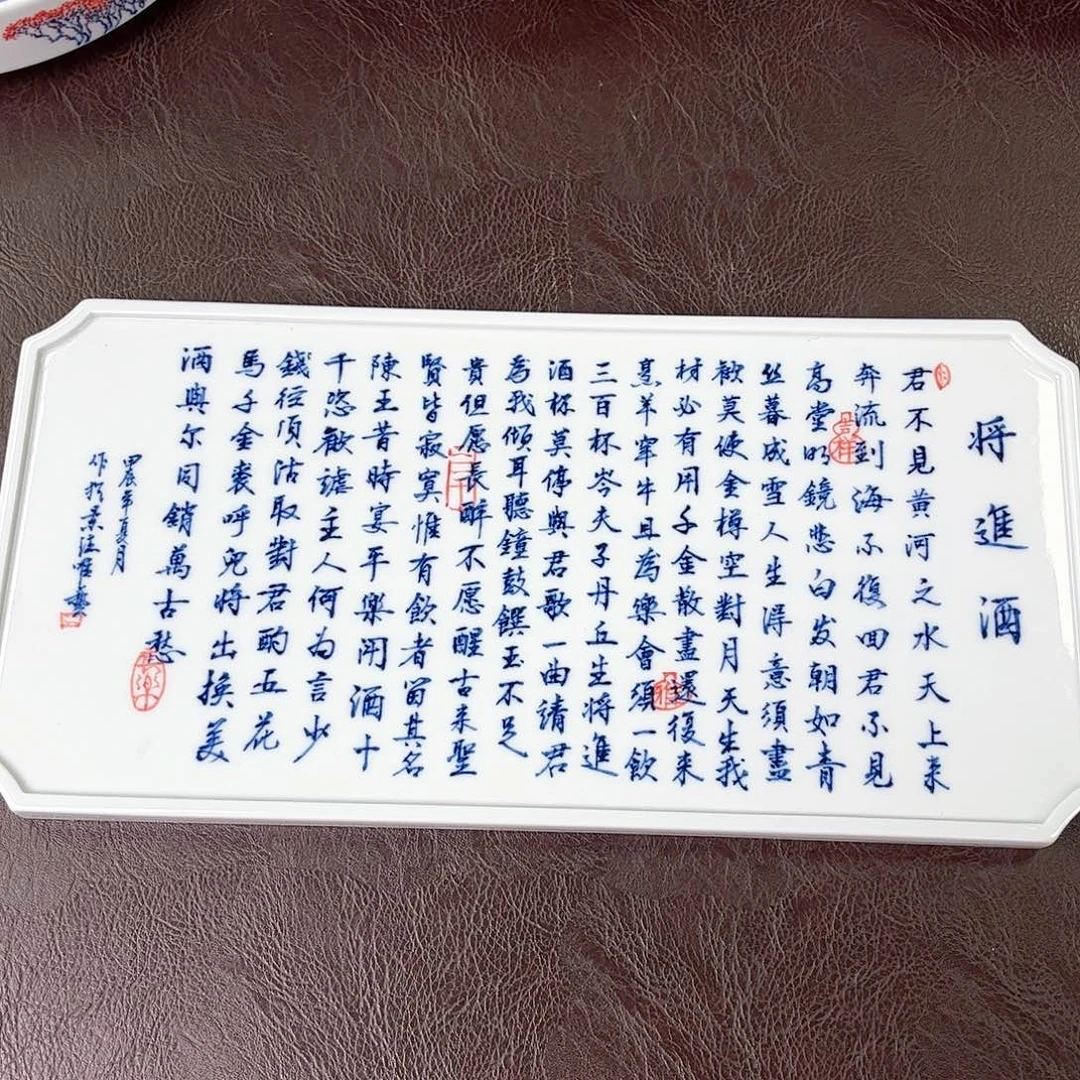 将進酒
君不見黄河之水天上来
奔流到海不復回君不見
高堂明鏡悲白发朝如青
丝暮成雪人生得意須盡
歓莫使金樽空對月天生我
材必有用千金散盡還復来
烹羊宰牛且為樂會須一飲
三百杯岑夫子丹丘生将進
酒杯莫停與君歌一曲請君
為我傾耳聽鐘鼓饌玉不足
貴但愿長醉不愿醒古来聖
賢皆寂寞惟有飲者留其名
陳王昔時宴平樂閗酒十
千恣歓謔主人何为言少
錢径須沽取對君酌五花
馬千金裘呼兒将出换美
酒與尔同銷萬古愁
甲辰年夏月
作於景德唯藝
吉祥